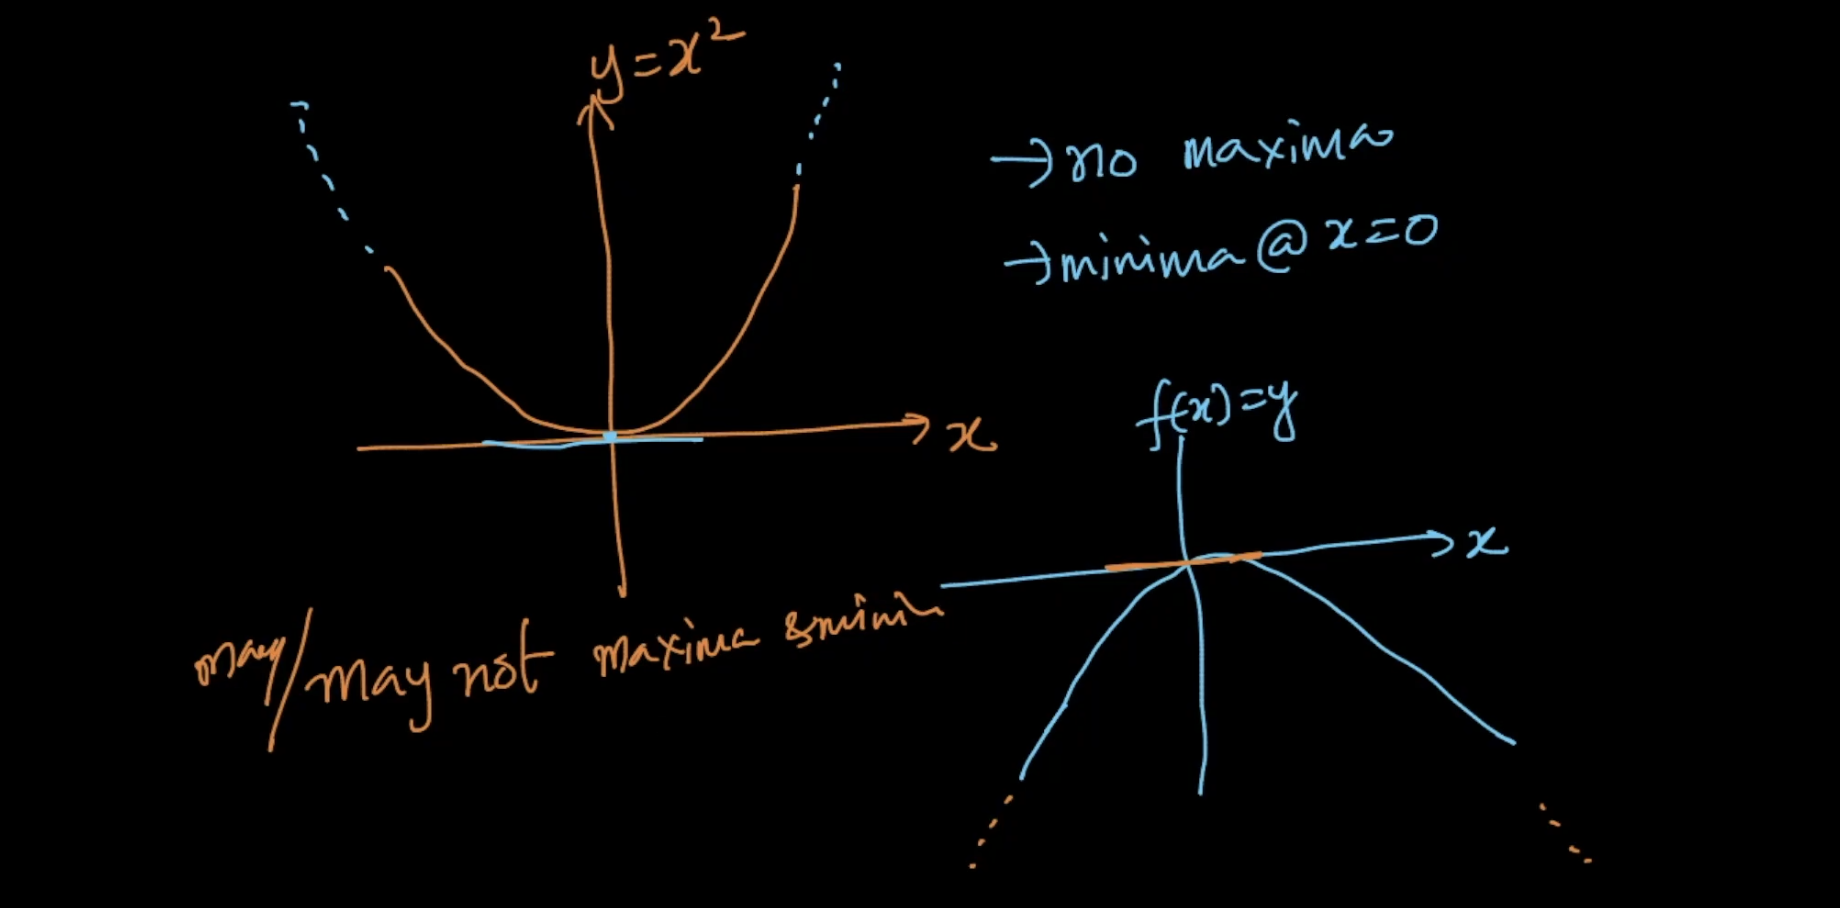 y=x²
→no maxima
→minima@x=0
x
f(x)=y
x
may/may not maxima &